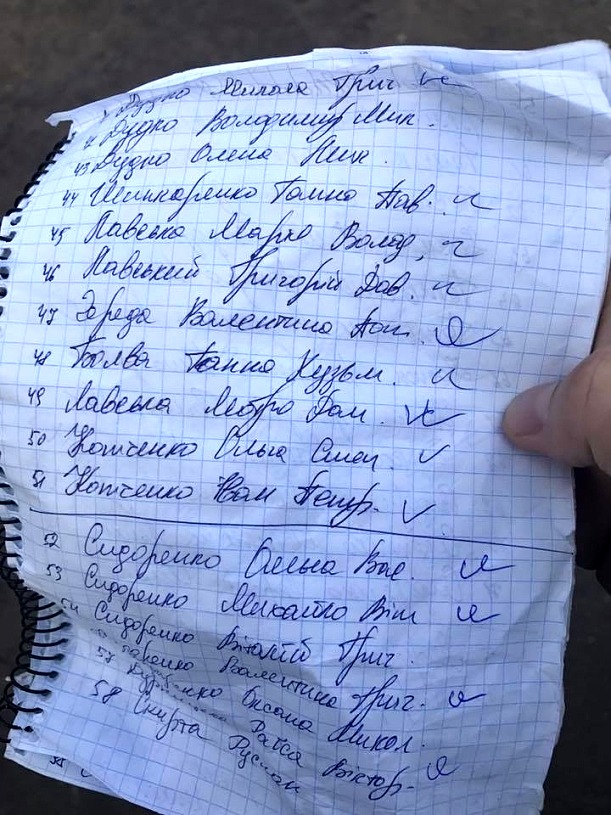 Дудко Микола Григ
42 Дудко Володимир Мик.
43 Дудко Олена Мик.
44 Шинкаренко Ганна Пав.
45 Лавська Марія Волод.
46 Лавський Григорій Дав.
47 Зареда Валентина
48 Ганна Кузьм.
49 Лавська Дан.
50 Котченко Ольга Степ.
51 Котченко Іван Петр.
52 Сидоренко Олена Вас.
53 Сидоренко Михайло Віт
54 Сидоренко Віталій Григ.
Валентина Григ.
57 Оксана Микол.
Раїса Віктор.
58 Скирта Руслан